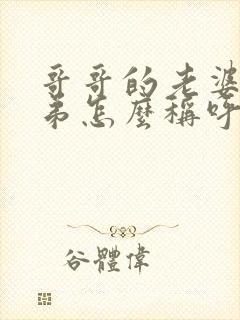 哥哥的老婆
弟怎麼稱呼
谷體偉